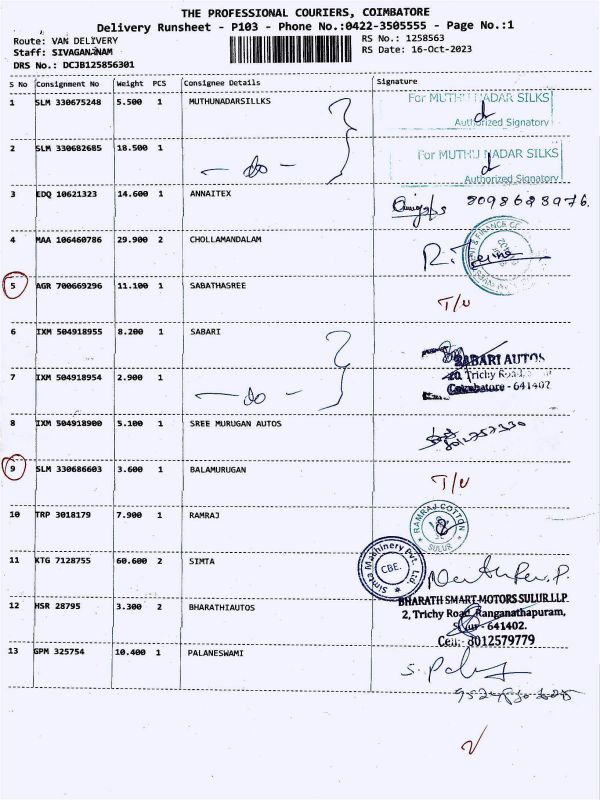 THE PROFESSIONAL COURIERS, COIMBATORE
Delivery Runsheet - P103 - Phone No.:0422-3505555 - Page No.:1
Route: VAN DELIVERY
RS No.: 1258563
Staff: SIVAGANJNAM
RS Date: 16-Oct-2023
DRS No.: DCJB125856301
S No Consignment No Weight PCS Consignee Details Signature
1 SLM 330675248 5.500 1 MUTHUNADARSILLKS
For MUTHU NADAR SILKS
Authorized Signatory
2 SLM 330682685 18.500 1 — do —
For MUTHU NADAR SILKS
Authorized Signatory
3 EDQ 10621323 14.600 1 ANNAITEX
4 MAA 106460786 29.900 2 CHOLLAMANDALAM
5 AGR 700669296 11.100 1 SABATHASREE T/U
6 IXM 504918955 8.200 1 SABARI
SABARI AUTOS
20, Trichy Road,
Coimbatore - 641402
7 IXM 504918954 2.900 1 — do —
8 IXM 504918900 5.100 1 SREE MURUGAN AUTOS
9 SLM 330686603 3.600 1 BALAMURUGAN T/U
10 TRP 3018179 7.900 1 RAMRAJ
RAMRAJ COTTON
SULUR
11 KTG 7128755 60.600 2 SIMTA
Simta Machinery Pvt. Ltd.
CBE.
12 HSR 28795 3.300 2 BHARATHIAUTOS
BHARATH SMART MOTORS SULUR LLP.
2, Trichy Road, Ranganathapuram,
Sulur - 641402.
Cell:- 8012579779
13 GPM 325754 10.400 1 PALANESWAMI